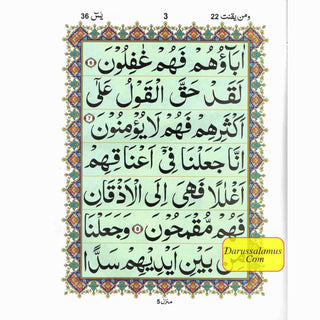 يٰسٓ 36 3 ومن يقنت 22
اٰبَآؤُهُمْ فَهُمْ غٰفِلُوْنَ ۝٦
لَقَدْ حَقَّ الْقَوْلُ عَلٰٓى
اَكْثَرِهِمْ فَهُمْ لَا يُؤْمِنُوْنَ ۝٧
اِنَّا جَعَلْنَا فِيْٓ اَعْنَاقِهِمْ
اَغْلٰلًا فَهِيَ اِلَى الْاَذْقَانِ
فَهُمْ مُّقْمَحُوْنَ ۝٨ وَجَعَلْنَا
بَيْنِ اَيْدِيْهِمْ سَدًّا
Darussalamus
.Com
منزل 5